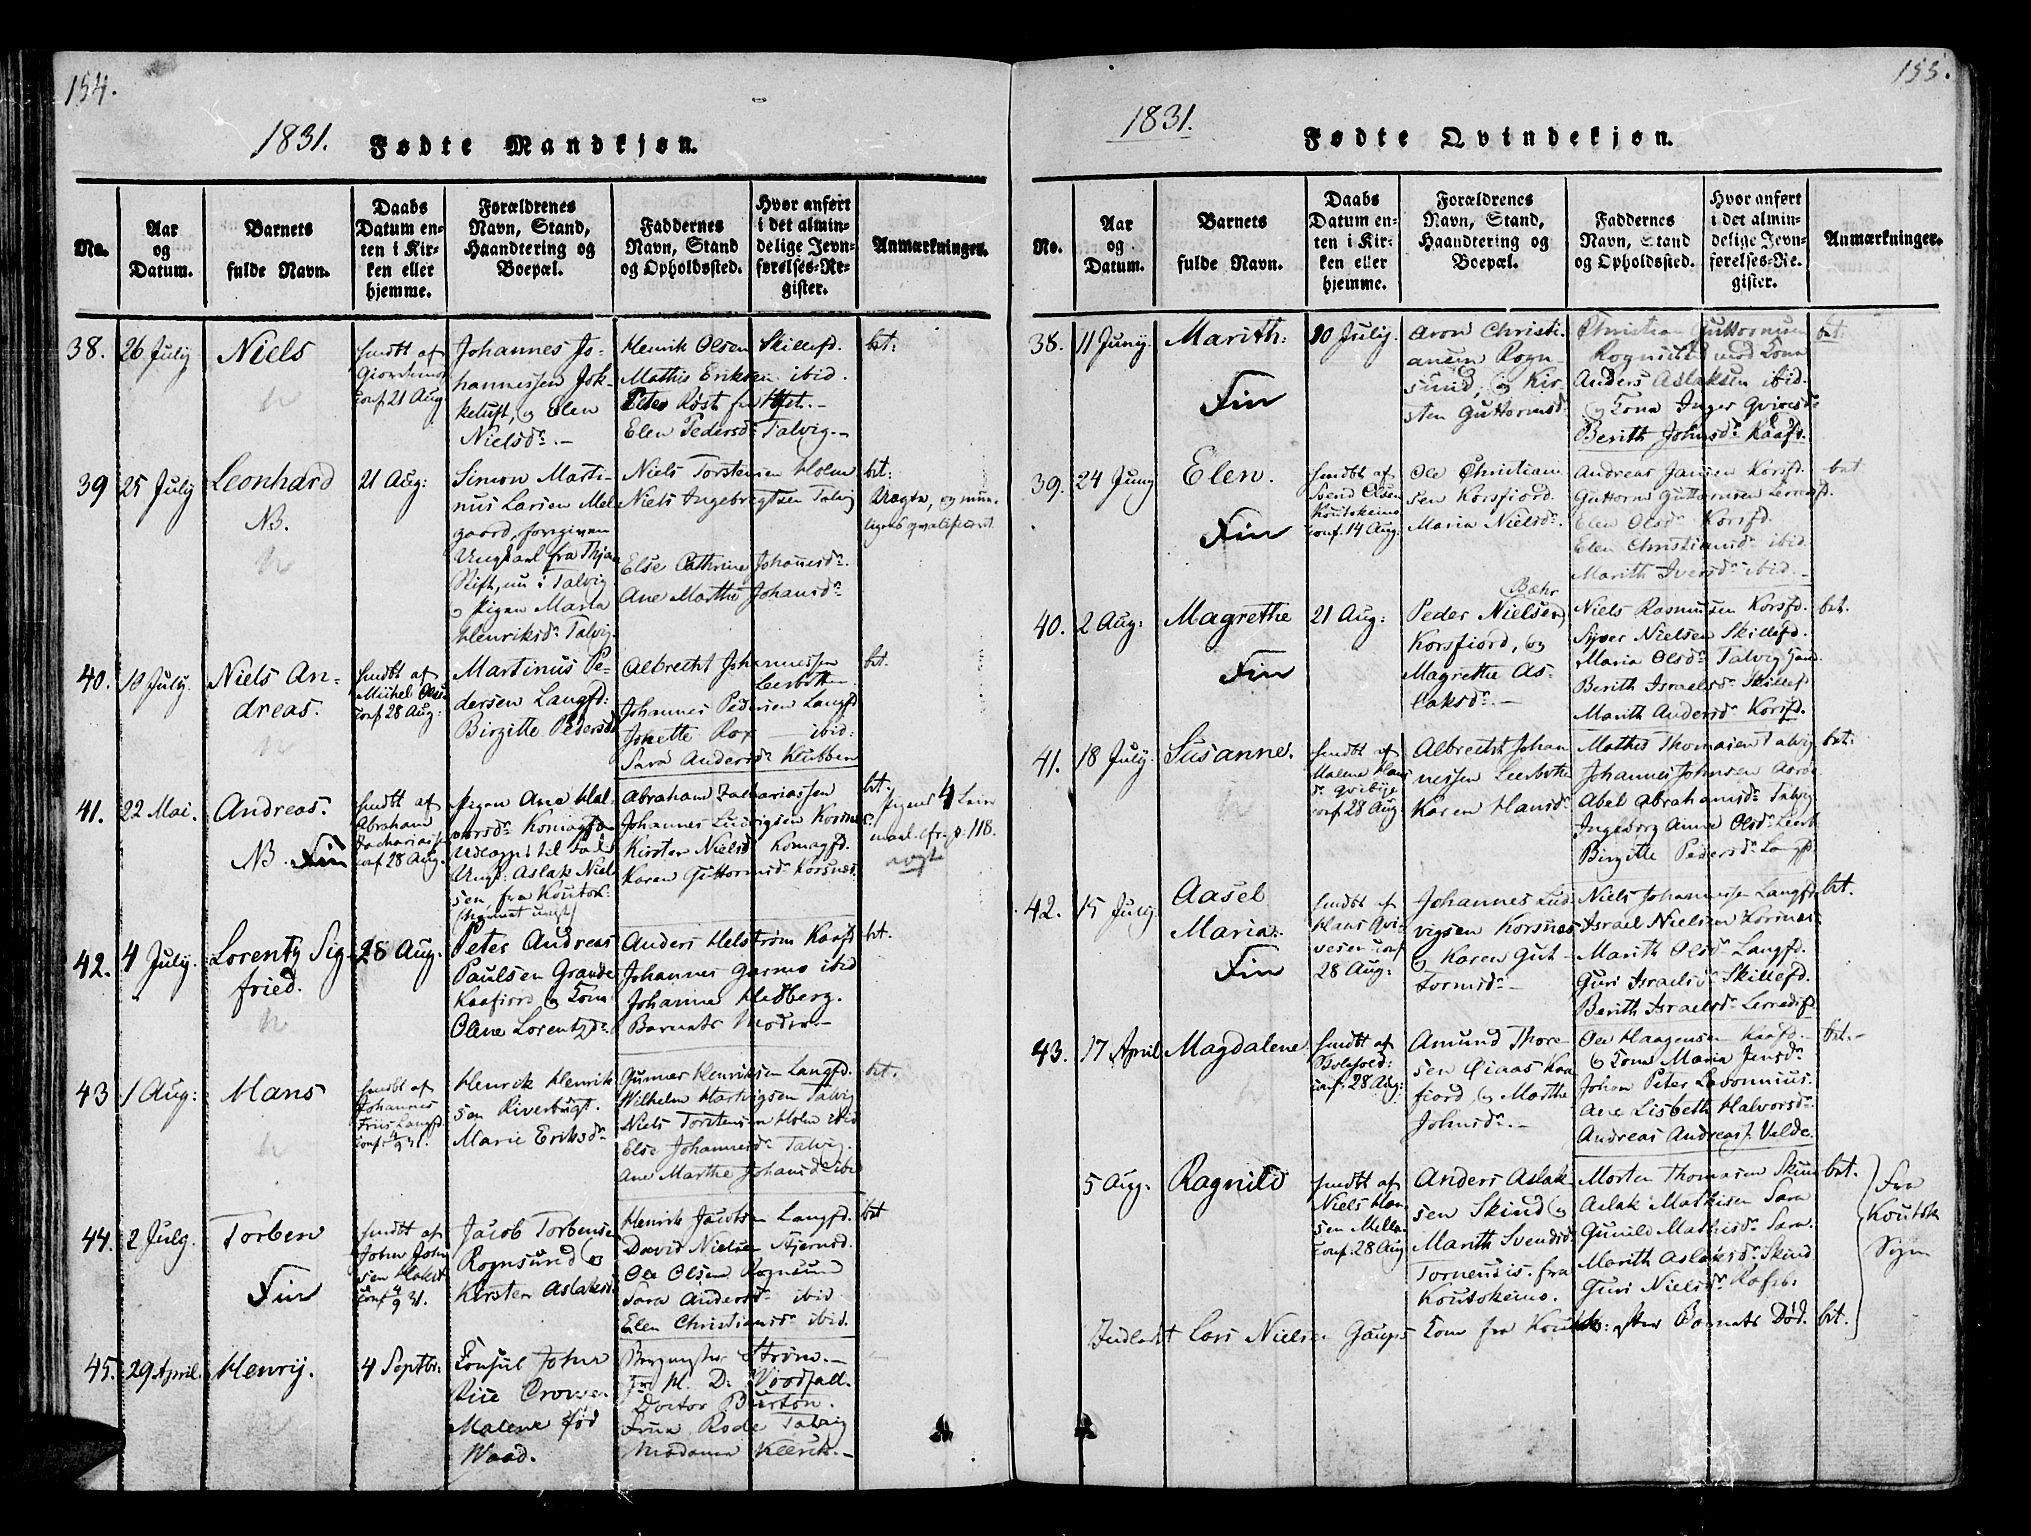 154.
1831. Fødte Mandkjøn.
No.
Aar og Datum.
Barnets fulde Navn.
Daabs Datum enten i Kirken eller hjemme.
Forældrenes Navn, Stand, Haandtering og Boepæl.
Faddernes Navn, Stand og Opholdssted.
Hvor anført i det almindelige Jevnførelses-Register.
Anmærkninger.
38. 26 July Niels
hmdt af
conf 21 Aug
Johannes Jo-
hannessen Jok-
keluft, og Elen
Nielsdr. —
Henrik Olsen Skillefd.
Mathis Eriksen ibid.
Elen Pedersdr Talvig. —
bt:
39 25 July Leonhard
NB.
21 Aug:
Simon Marti-
nus Larsen Mel-
gaard,
Ungkarl fra Thjm
Stift, nu i Talvig
og Pigen Maria
Henriksdr Talvig.
Niels Torstensen Holm
Niels Ingebrigtsen Talvig
Else Cathrine Johansdr.
Ane Marthe Johansdr
bt:
40. 10 July. Niels An-
dreas.
hmdt af
Michel Olsen
conf 28 Aug:
Martinus Pe-
dersen Langfd:
Birgitte Pedersdr
Albrecht Johannessen
Leerbotten
Johannes Pedersen Langfd
Jonette Rox — ibid:
Sara Andersdr Klubben
bt.
41. 22 Mai. Andreas.
NB. Fin
hmdt af
Abraham
Zachariass.
conf 28 Aug.
Pigen Ane Hal-
vorsdr Komagfd
Udlagt til Fad.
Ungk: Aslak Niel-
sen, fra Koutok:
Abraham Zachariassen
Johannes Ludvigsen Korsnes.
Kirsten Nielsdr Komagfd.
Karen Guttormsdr Korsnes.
bt.
Pigens 4 Leier
p. 118.
42. 4 July. Lorentz Sig-
fried.
28 Aug.
Peter Andreas
Paulsen Grande
Kaafiord, og Kone
Olene Lorentzdr.
Anders Helstrøm Kaafd
Johannes Garmo ibid
Johanne Hedberg.
Barnets Modr. —
bt.
43 1 Aug: Hans
hmdt af
Johannes
Friis Langfd.
conf 4/9 31.
Henrik Henrik-
sen Riverbugt.
Marie Eriksdr
Gunner Henriksen Langfd.
Wilhelm Hartvigsen Talvig
Niels Torstensen Holm ibid
Else Johannesdr Talvig.
Ane Marthe Johansdr ibid
bt.
44. 2 July. Torben
Fin
hmdt af
John John-
sen
conf 4/9 31.
Jacob Torbensen
Rognsund og
Kirsten Aslaksdr
Henrik Jacobsen Langfd.
David Nielsen Stjernsd.
Ole Olsen Rognsund
Sara Andersdr ibid
Elen Christiansdr ibid.
bt
45. 29 April. Henry.
4 Septbr.
Consul John
Rice Crowe
Malene fød
Waad.
Strøm. —
Fr. H. D. Woodfall.
Doctor Burton.
Frue Rode Talvig
Madame Klerck. —
155.
1831. Fødte Qvindekjøn.
No.
Aar og Datum.
Barnets fulde Navn.
Daabs Datum enten i Kirken eller hjemme.
Forældrenes Navn, Stand, Haandtering og Boepæl.
Faddernes Navn, Stand og Opholdssted.
Hvor anført i det almindelige Jevnførelses-Register.
Anmærkninger.
38. 11 Juny. Marith:
Fin
10 July.
Aron Christi-
ansen Rogn-
sund, og Kir-
sten Guttormsdr
Christian Guttormsen
Rognsund med Kone
Anders Aslaksen ibid.
og Kone Inger
Berith Johnsdr Kaafd.
bt.
39. 24 Juny Elen.
Fin
hmdt af
Svend Olsen
Koutokeino
conf. 14 Aug.
Ole Christian-
sen Korsfiord.
Maria Nielsdr.
Andreas Jansen Korsfd.
Guttorm Guttormsen
Elen Olsdr Korsfd.
Elen Christiansdr ibid.
Marith Iversdr ibid. —
bt.
40. 2 Aug: Magrethe
Fin
21 Aug:
Bæhr
Peder Nielsen
Korsfiord, og
Magrethe As-
laksdr. —
Niels Rasmussen Korsfd.
Syver Nielsen Skillefd.
Maria Olsdr Talvig
Berith Israelsdr Skillefd
Marith Andersdr Korsfd.
bt.
41. 18 July. Susanne.
hmdt af
Malene Hans-
dr
conf 28 Aug:
Albrecht Johan-
nessen Leerbotten
Karen Hansdr
Mathis Thomasen Talvig
Johannes Johnsen
Abel Abrahamsdr Talvig
Ingeborg Anne Olsdr Leerb
Birgitte Pedersdr Langfd.
bt:
42. 15 July. Aasel
Maria.
Fin
hmdt af
Hans Qvi-
vesen conf
28 Aug:
Johannes Lud-
vigsen Korsnes
og Karen Gut-
tormsdr —
Niels Johannesen Langfd
Israel Nielsen Korsnes
Marith Olsdr Langfd.
Guri Israelsdr Skillefd.
Berith Israelsdr
bt.
43. 17 April Magdalene
hmdt af
conf: 28 Aug:
Amund Thore-
sen Kaa-
fiord, og Marthe
Johnsdr. —
Ole Haagensen Kaafd.
og Kone Maria Jensdr
Johan Peter
Ane Lisbeth Halvorsdr
Andreas Andreass. Valde.
bt. —
5 Aug: Ragnild
hmdt af
Niels Han-
sen
conf. 28 Aug
Anders Aslak-
sen Skind og
Marith Svendsdr
Tornensis fra
Koutokeino.
Morten Thomasen Skind
Aslak Mathisen Sara
Gunild Mathisdr Sara.
Marith Aslaksdr Skind
Guri Nielsdr
bt.
Fra
Koutok
Sogn
Indledt Lars Nielsen Gaups Kone fra Koutok: efter Barnets Død. bt.